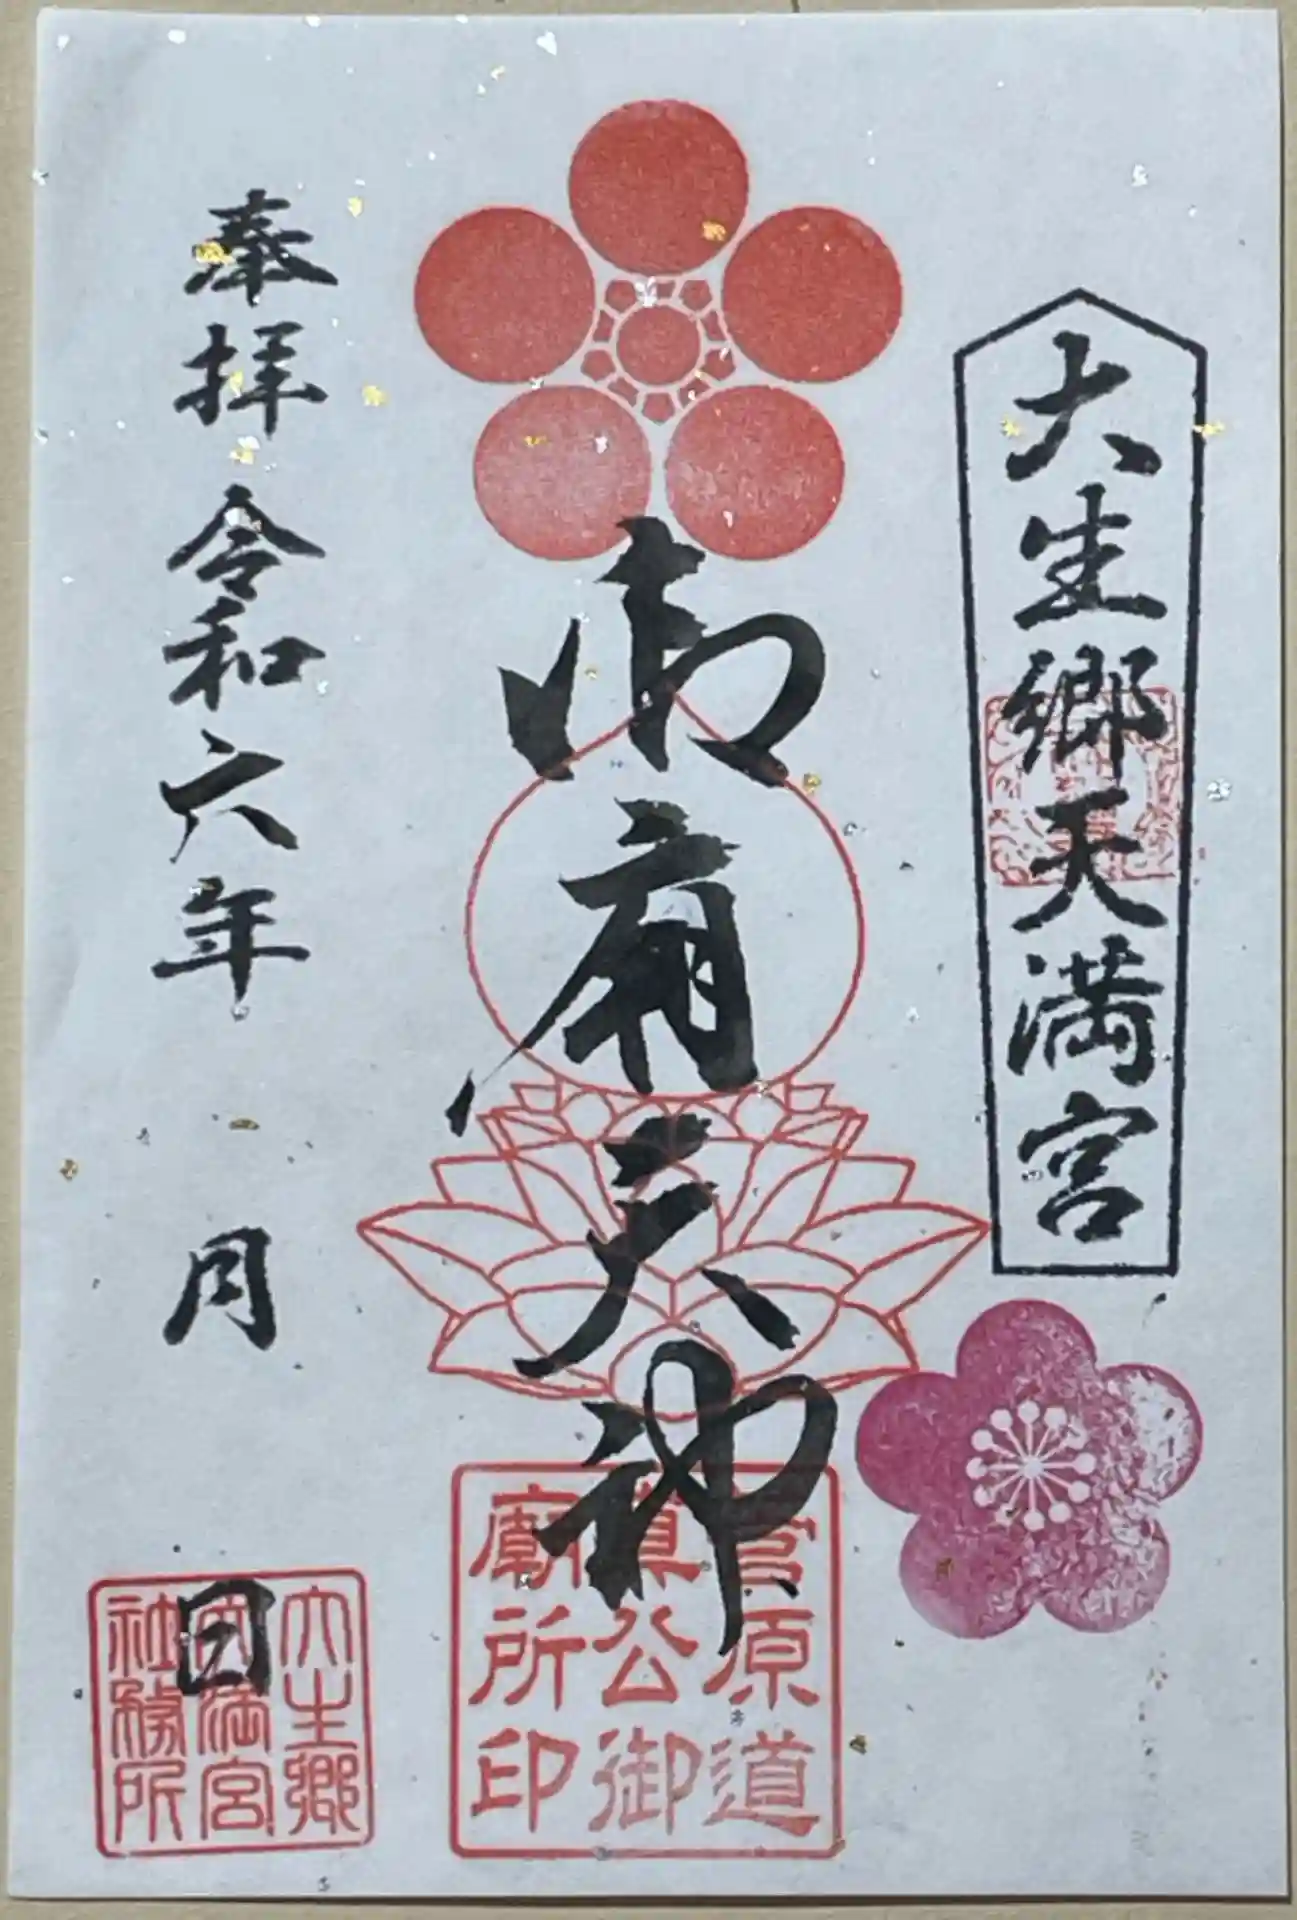 大生郷天満宮
御廟天神
奉拝 令和六年 月 日
菅原道
真公御
廟所印
大生郷
天満宮
社務所